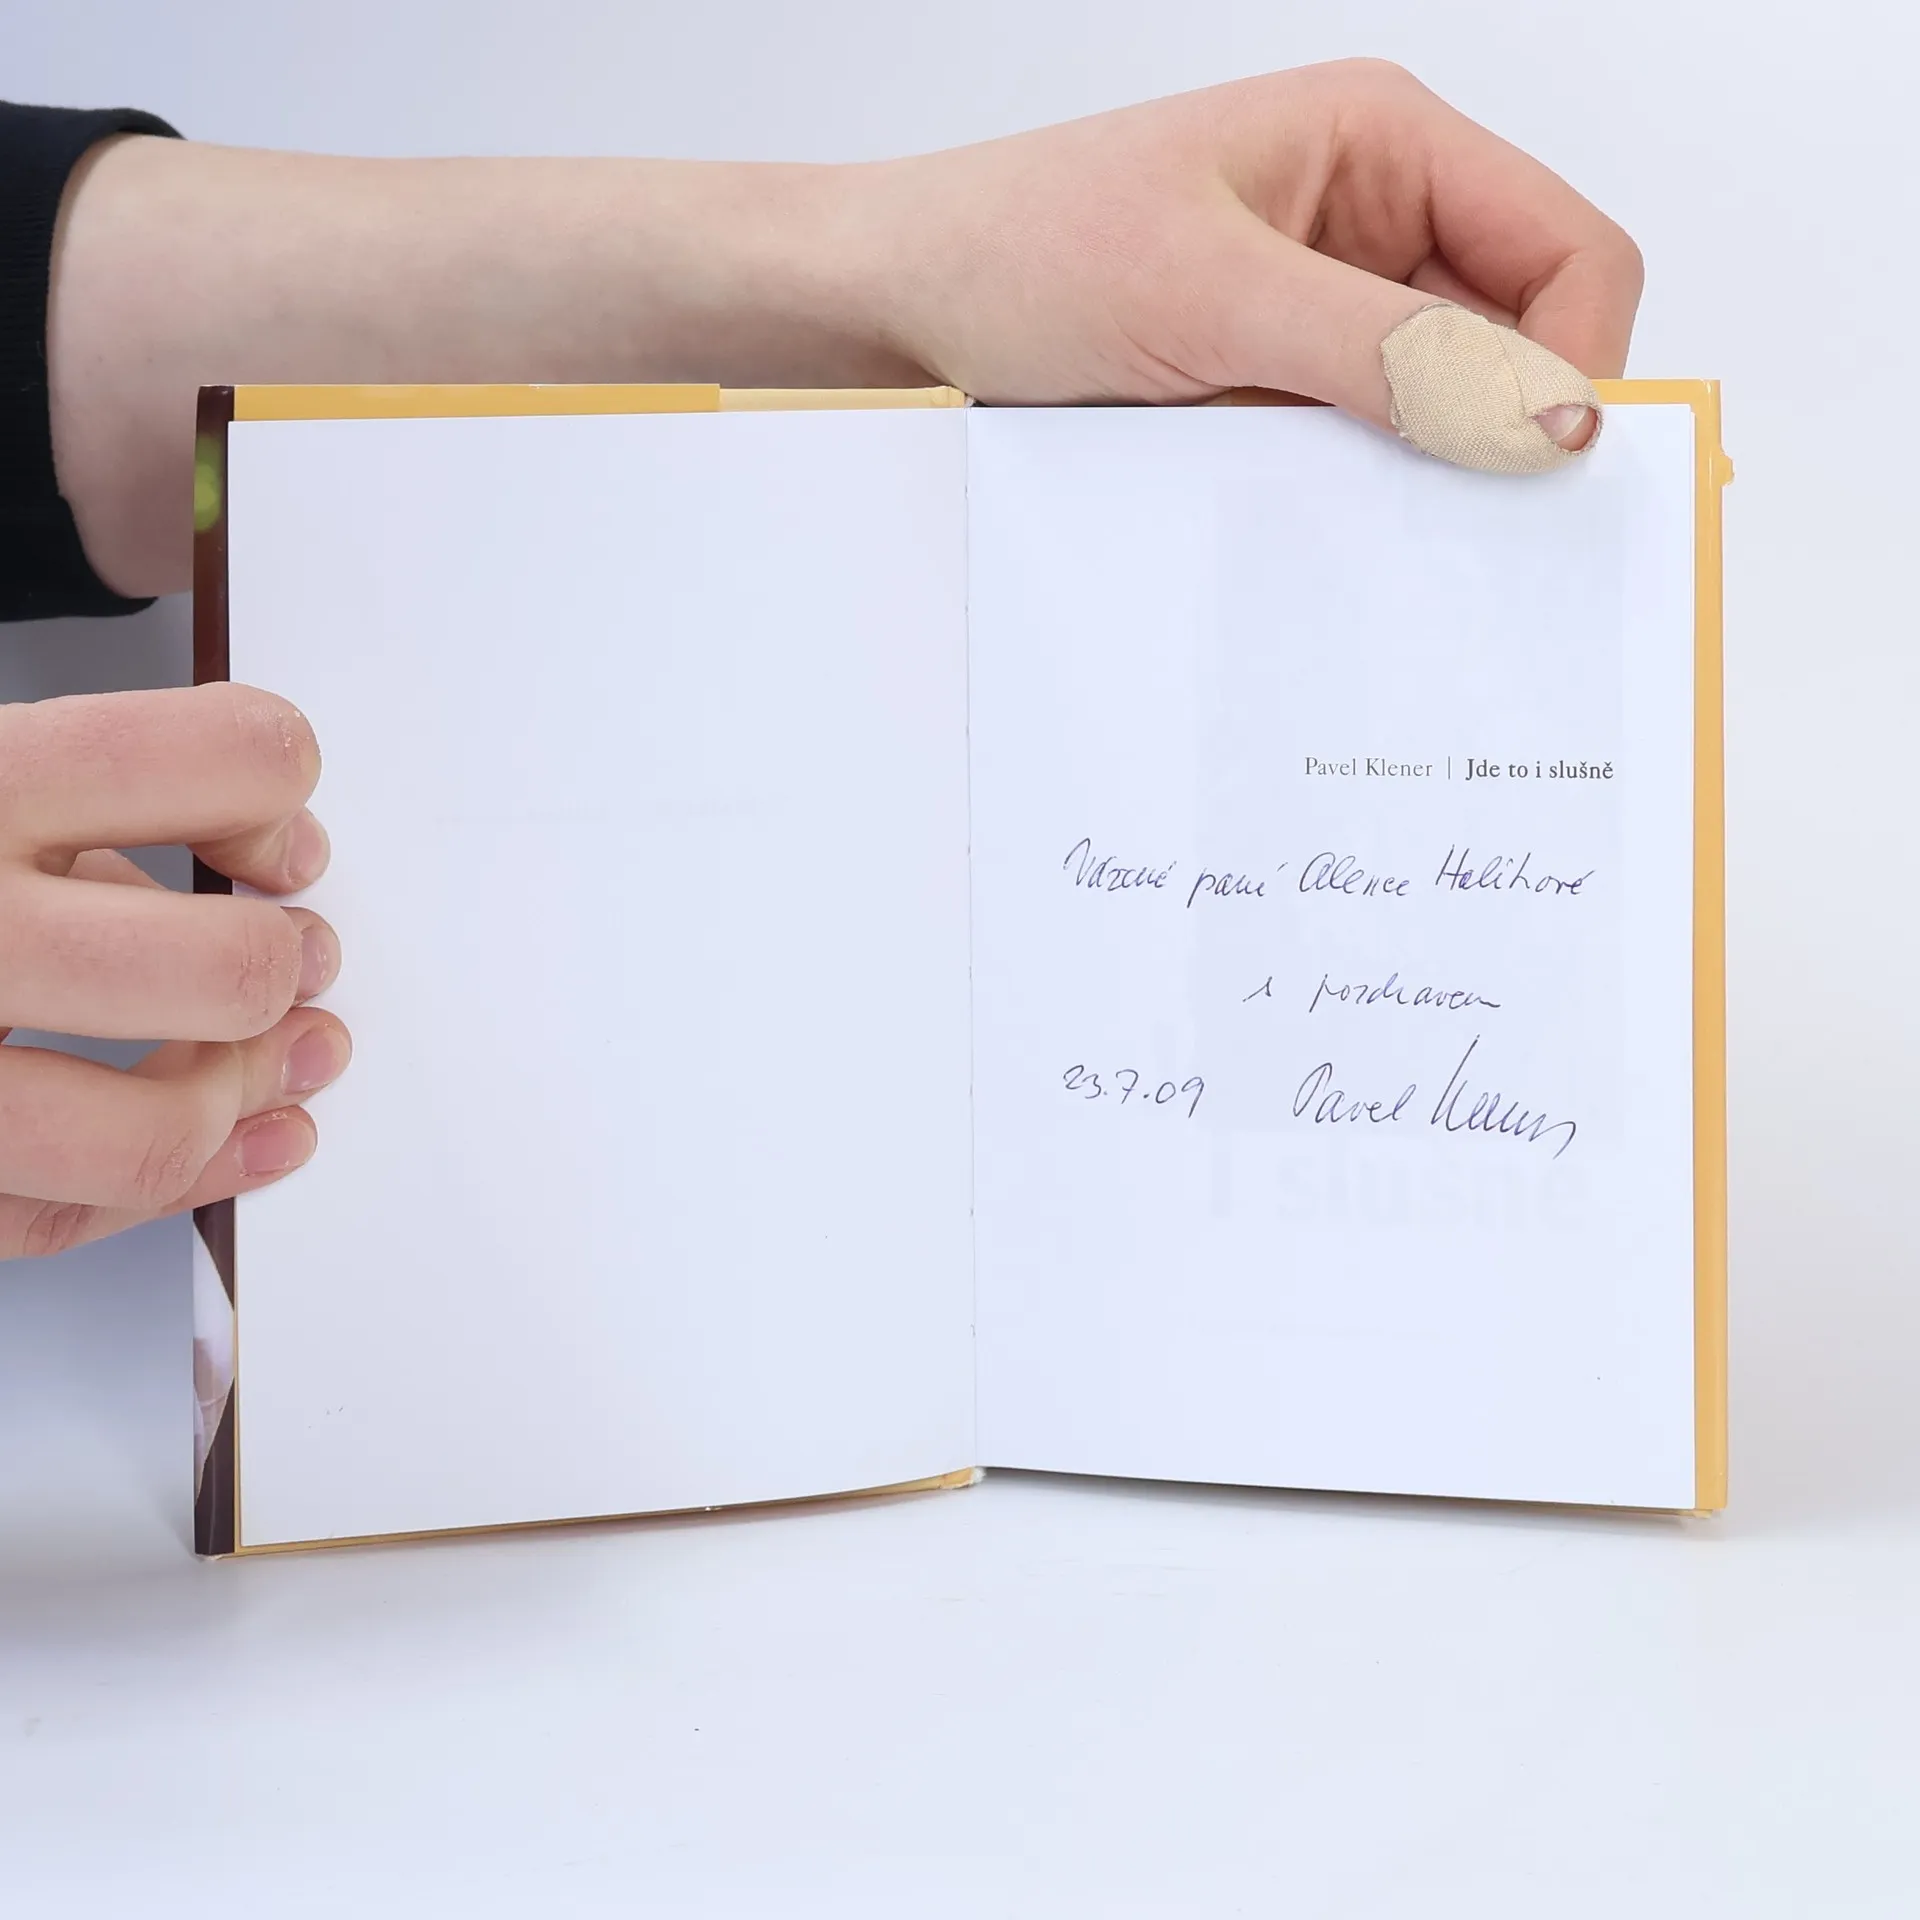 Pavel Klener | Jde to i slušně
Vážené paní Alence Halíkové
s pozdravem
23.7.09 Pavel Klener
i slušně